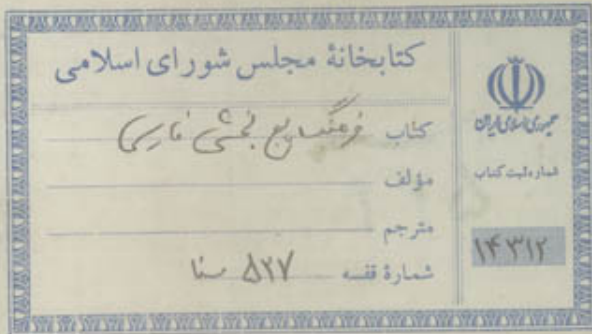 کتابخانهٔ مجلس شورای اسلامی
کتاب فرهنگ پنج بخشی فارسی
مؤلف
مترجم
شمارهٔ قفسه ۵۲۷ سنا
جمهوری اسلامی ایران
شماره ثبت کتاب
۱۴۳۱۲